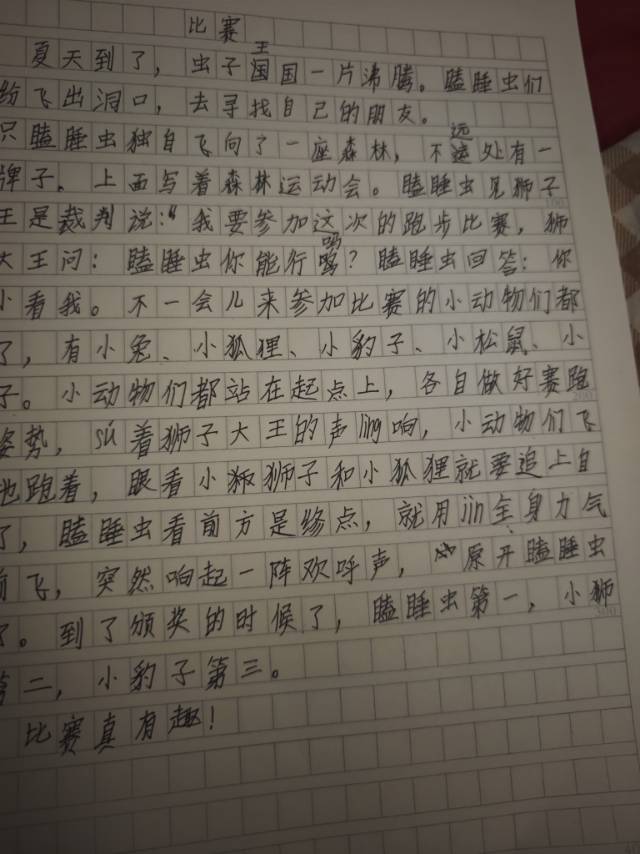 比赛
夏天到了，虫子王国一片沸腾。瞌睡虫们
纷飞出洞口，去寻找自己的朋友。
只瞌睡虫独自飞向了一座森林，不远处有一
牌子，上面写着森林运动会。瞌睡虫见狮子
王是裁判说：“我要参加这次的跑步比赛，狮
大王问：瞌睡虫你能行吗？瞌睡虫回答：你
小看我。不一会儿来参加比赛的小动物们都
了，有小兔、小狐狸、小豹子、小松鼠、小
子。小动物们都站在起点上，各自做好赛跑
姿势，suí着狮子大王的声ling响，小动物们飞
地跑着，眼看小狮子和小狐狸就要追上自
了，瞌睡虫看前方是终点，就用jìn全身力气
前飞，突然响起一阵欢呼声，原开瞌睡虫
了。到了颁奖的时候了，瞌睡虫第一，小狮
第二，小豹子第三。
比赛真有趣！